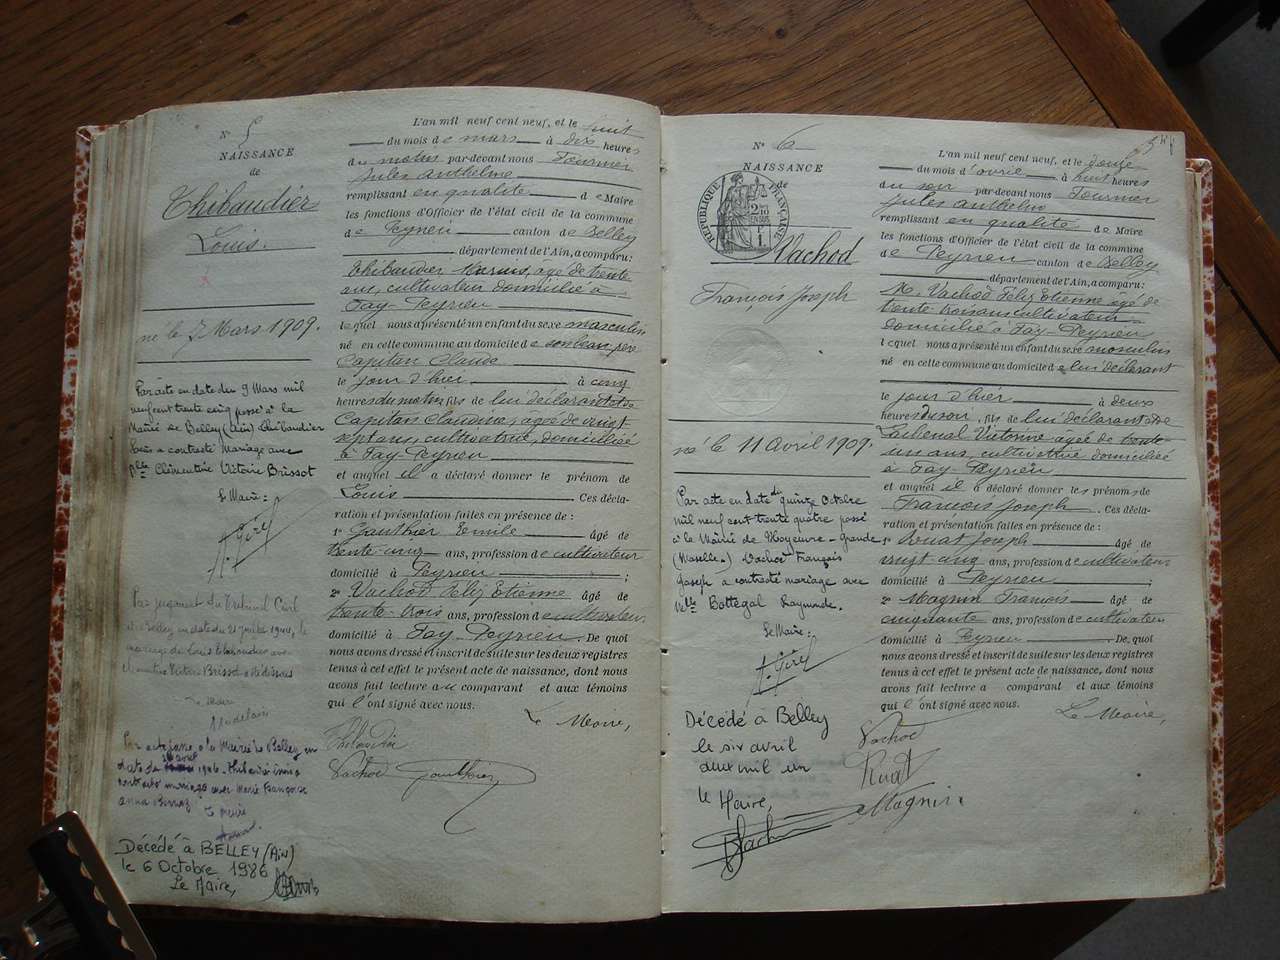 N° 5
NAISSANCE
de
Thibaudier
Louis.
né le 7 Mars 1909.
Par acte en date du 9 Mars mil
neuf cent trente cinq passé à la
Mairie de Belley (Ain) Thibaudier
Louis a contracté Mariage avec
Clémentine Victoire Brissot
Le Maire :
Par jugement du Tribunal Civil
de Belley en date du 21 juillet 1944, le
mariage de Louis Thibaudier avec
Clémentine Victoire Brissot a été dissous
Le Maire
Par acte passé à la Mairie de Belley en
date du 1946 Thibaudier
contracté mariage avec Marie Françoise
Anna
Le Maire
Décédé à BELLEY (Ain)
le 6 Octobre 1986
Le Maire,
L'an mil neuf cent neuf, et le huit
du mois de mars à dix heures
du matin par-devant nous Fournier
Jules Anthelme
remplissant en qualité de Maire
les fonctions d'Officier de l'état civil de la commune
de Peyrieu canton de Belley
département de l'Ain, a comparu :
Thibaudier Marius, âgé de trente
ans, cultivateur domicilié à
Fay-Peyrieu
lequel nous a présenté un enfant du sexe masculin
né en cette commune au domicile de son beau père
Capitan Claude
le jour d'hier à cinq
heures du matin fils de lui déclarant et de
Capitan Claudine, âgée de vingt
sept ans, cultivatrice, domiciliée
à Fay-Peyrieu
et auquel il a déclaré donner le prénom de
Louis Ces décla-
ration et présentation faites en présence de :
1° Gauthier Emile âgé de
trente cinq ans, profession de cultivateur
domicilié à Peyrieu ;
2° Vachod Félix Etienne âgé de
trente-trois ans, profession de cultivateur
domicilié à Fay Peyrieu. De quoi
nous avons dressé et inscrit de suite sur les deux registres
tenus à cet effet le présent acte de naissance, dont nous
avons fait lecture au comparant et aux témoins
qui l'ont signé avec nous.
Le Maire,
Thibaudier
Vachod Gauthier
N° 6
NAISSANCE
de
RÉPUBLIQUE FRANÇAISE
Vachod
François Joseph
né le 11 avril 1909.
Par acte en date du quinze Octobre
mil neuf cent trente quatre passé
à la Mairie de Moyeuvre-Grande
(Moselle) Vachod François
Joseph a contracté mariage avec
Melle Bottegal Raymonde.
Le Maire :
Décédé à Belley
le six avril
deux mil un
le Maire,
L'an mil neuf cent neuf, et le douze
du mois d'avril à huit heures
du soir par-devant nous Fournier
Jules Anthelme
remplissant en qualité de Maire
les fonctions d'Officier de l'état civil de la commune
de Peyrieu canton de Belley
département de l'Ain, a comparu :
M. Vachod Félix Etienne âgé de
trente trois ans cultivateur
domicilié à Fay-Peyrieu
lequel nous a présenté un enfant du sexe masculin
né en cette commune au domicile de lui déclarant
le jour d'hier à deux
heures du soir, fils de lui déclarant et de
Victorine âgée de trente
un ans, cultivatrice domiciliée
à Fay-Peyrieu
et auquel il a déclaré donner les prénoms de
François Joseph. Ces décla-
ration et présentation faites en présence de :
1° Rouat Joseph âgé de
vingt cinq ans, profession de cultivateur
domicilié à Peyrieu ;
2° Magnin François âgé de
cinquante ans, profession de cultivateur
domicilié à Peyrieu. De quoi
nous avons dressé et inscrit de suite sur les deux registres
tenus à cet effet le présent acte de naissance, dont nous
avons fait lecture a comparant et aux témoins
qui l'ont signé avec nous.
Le Maire,
Vachod
Magnin